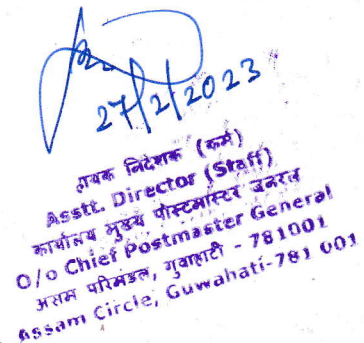 27/2/2023
हायक निदेशक (कर्म)
Asstt. Director (Staff)
कार्यालय मुख्य पोस्टमास्टर जनरल
O/o Chief Postmaster General
असम परिमंडल, गुवाहाटी - 781001
Assam Circle, Guwahati-781 001